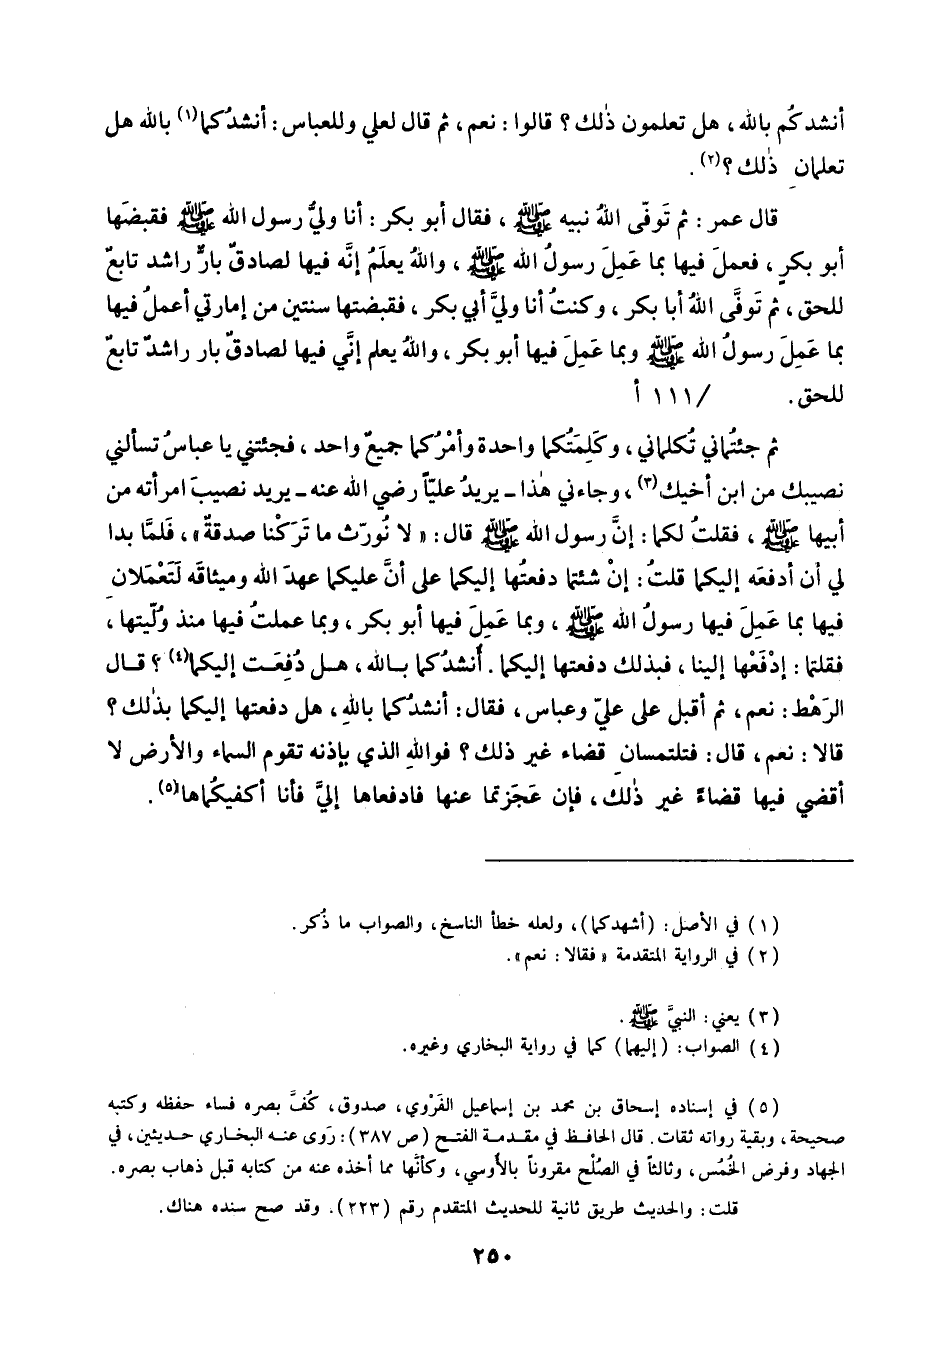 أنشدكُم بالله، هل تعلمون ذٰلك؟ قالوا: نعم، ثم قال لعلي وللعباس: أنشدُكما(١) بالله هل
تعلمانِ ذٰلك؟(٢).
قال عمر: ثم تَوفّى اللهُ نبيه ﷺ، فقال أبو بكر: أنا وليُّ رسول الله ﷺ فقبضَها
أبو بكرٍ، فعملَ فيها بما عَمِلَ رسولُ الله ﷺ، واللهُ يعلَمُ إنَّه فيها لصادقٌ بارٌّ راشد تابعٌ
للحق، ثم تَوفَّى اللهُ أبا بكر، وكنتُ أنا وليَّ أبي بكر، فقبضتها سنتين من إمارتي أعملُ فيها
بما عَمِلَ رسولُ الله ﷺ وبما عَمِلَ فيها أبو بكر، واللهُ يعلم إنَّي فيها لصادقٌ بار راشدٌ تابعٌ
للحق. /١١١ أ
ثم جئتُماني تُكلماني، وكَلِمَتُكما واحدة وأمْرُكما جميعٌ واحد، فجئتني يا عباسُ تسألني
نصيبك من ابن أخيك(٣)، وجاءني هذا ـ يريدُ عليّاً رضي الله عنه ـ يريد نصيبَ امرأته من
أبيها ﷺ، فقلتُ لكما: إنَّ رسول الله ﷺ قال: «لا نُورّث ما تَرَكْنا صدقةٌ»، فَلمَّا بدا
لي أن أدفعَه إليكما قلتُ: إنْ شئتما دفعتُها إليكما على أنَّ عليكما عهدَ الله وميثاقَه لَتَعْمَلانِ
فيها بما عَمِلَ فيها رسولُ الله ﷺ، وبما عَمِلَ فيها أبو بكر، وبما عملتُ فيها منذ وُلّيتها،
فقلتما: إدْفَعْها إلينا، فبذلك دفعتها إليكما. أنشدُكما بالله، هل دُفِعَت إليكما(٤)؟ قال
الرَهْط: نعم، ثم أقبل على عليّ وعباس، فقال: أنشدُكما باللهِ، هل دفعتها إليكما بذٰلك؟
قالا: نعم، قال: فتلتمسانِ قضاء غير ذلك؟ فواللهِ الذي بإذنه تقوم السماء والأرض لا
أقضي فيها قضاءً غير ذٰلك، فإن عَجَزتما عنها فادفعاها إليَّ فأنا أكفيكُماها(٥).
(١) في الأصل: (أشهدكما)، ولعله خطأ الناسخ، والصواب ما ذُكر.
(٢) في الرواية المتقدمة «فقالا: نعم».
(٣) يعني: النبيَّ ﷺ.
(٤) الصواب: (إليهما) كما في رواية البخاري وغيره.
(٥) في إسناده إسحاق بن محمد بن إسماعيل الفَرْوي، صدوق، كُفَّ بصره فساء حفظه وكتبه
صحيحة، وبقية رواته ثقات. قال الحافظ في مقدمة الفتح (ص ٣٨٧): رَوى عنه البخاري حديثين، في
الجهاد وفرض الخُمُس، وثالثاً في الصُلْح مقروناً بالأُوسي، وكأنَّها مما أخذه عنه من كتابه قبل ذهاب بصره.
قلت: والحديث طريق ثانية للحديث المتقدم رقم (٢٢٣). وقد صح سنده هناك.
٢٥٠